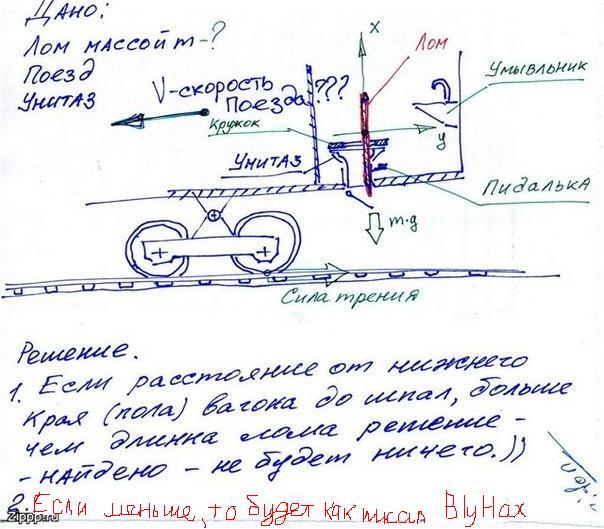 Дано:
Лом массой m-?
Поезд
Унитаз
V-скорость
поезда???
x
Лом
Умывльник
Кружок
y
Унитаз
Пидалька
m·g
Сила трения
Решение.
1. Если расстояние от нижнего
края (пола) вагока до шпал, больше
чем длинна лома решение -
- найдено - не будет ничего.))
2. Если меньше, то будет как писал ВlyHax
Zippp.ru